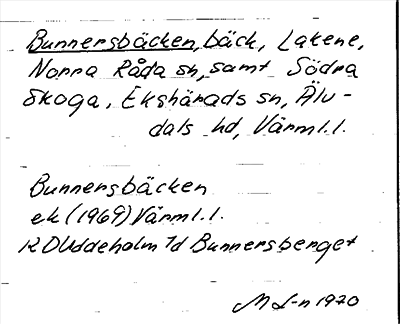 Bunnersbäcken, bäck, Lakene,
Norra Råda sn, samt Södra
Skoga, Ekshärads sn, Älv-
dals hd, Värml.l.
Bunnersbäcken
ek (1969) Värml.l.
RD Uddeholm 7d Bunnersberget
M L-n 1970